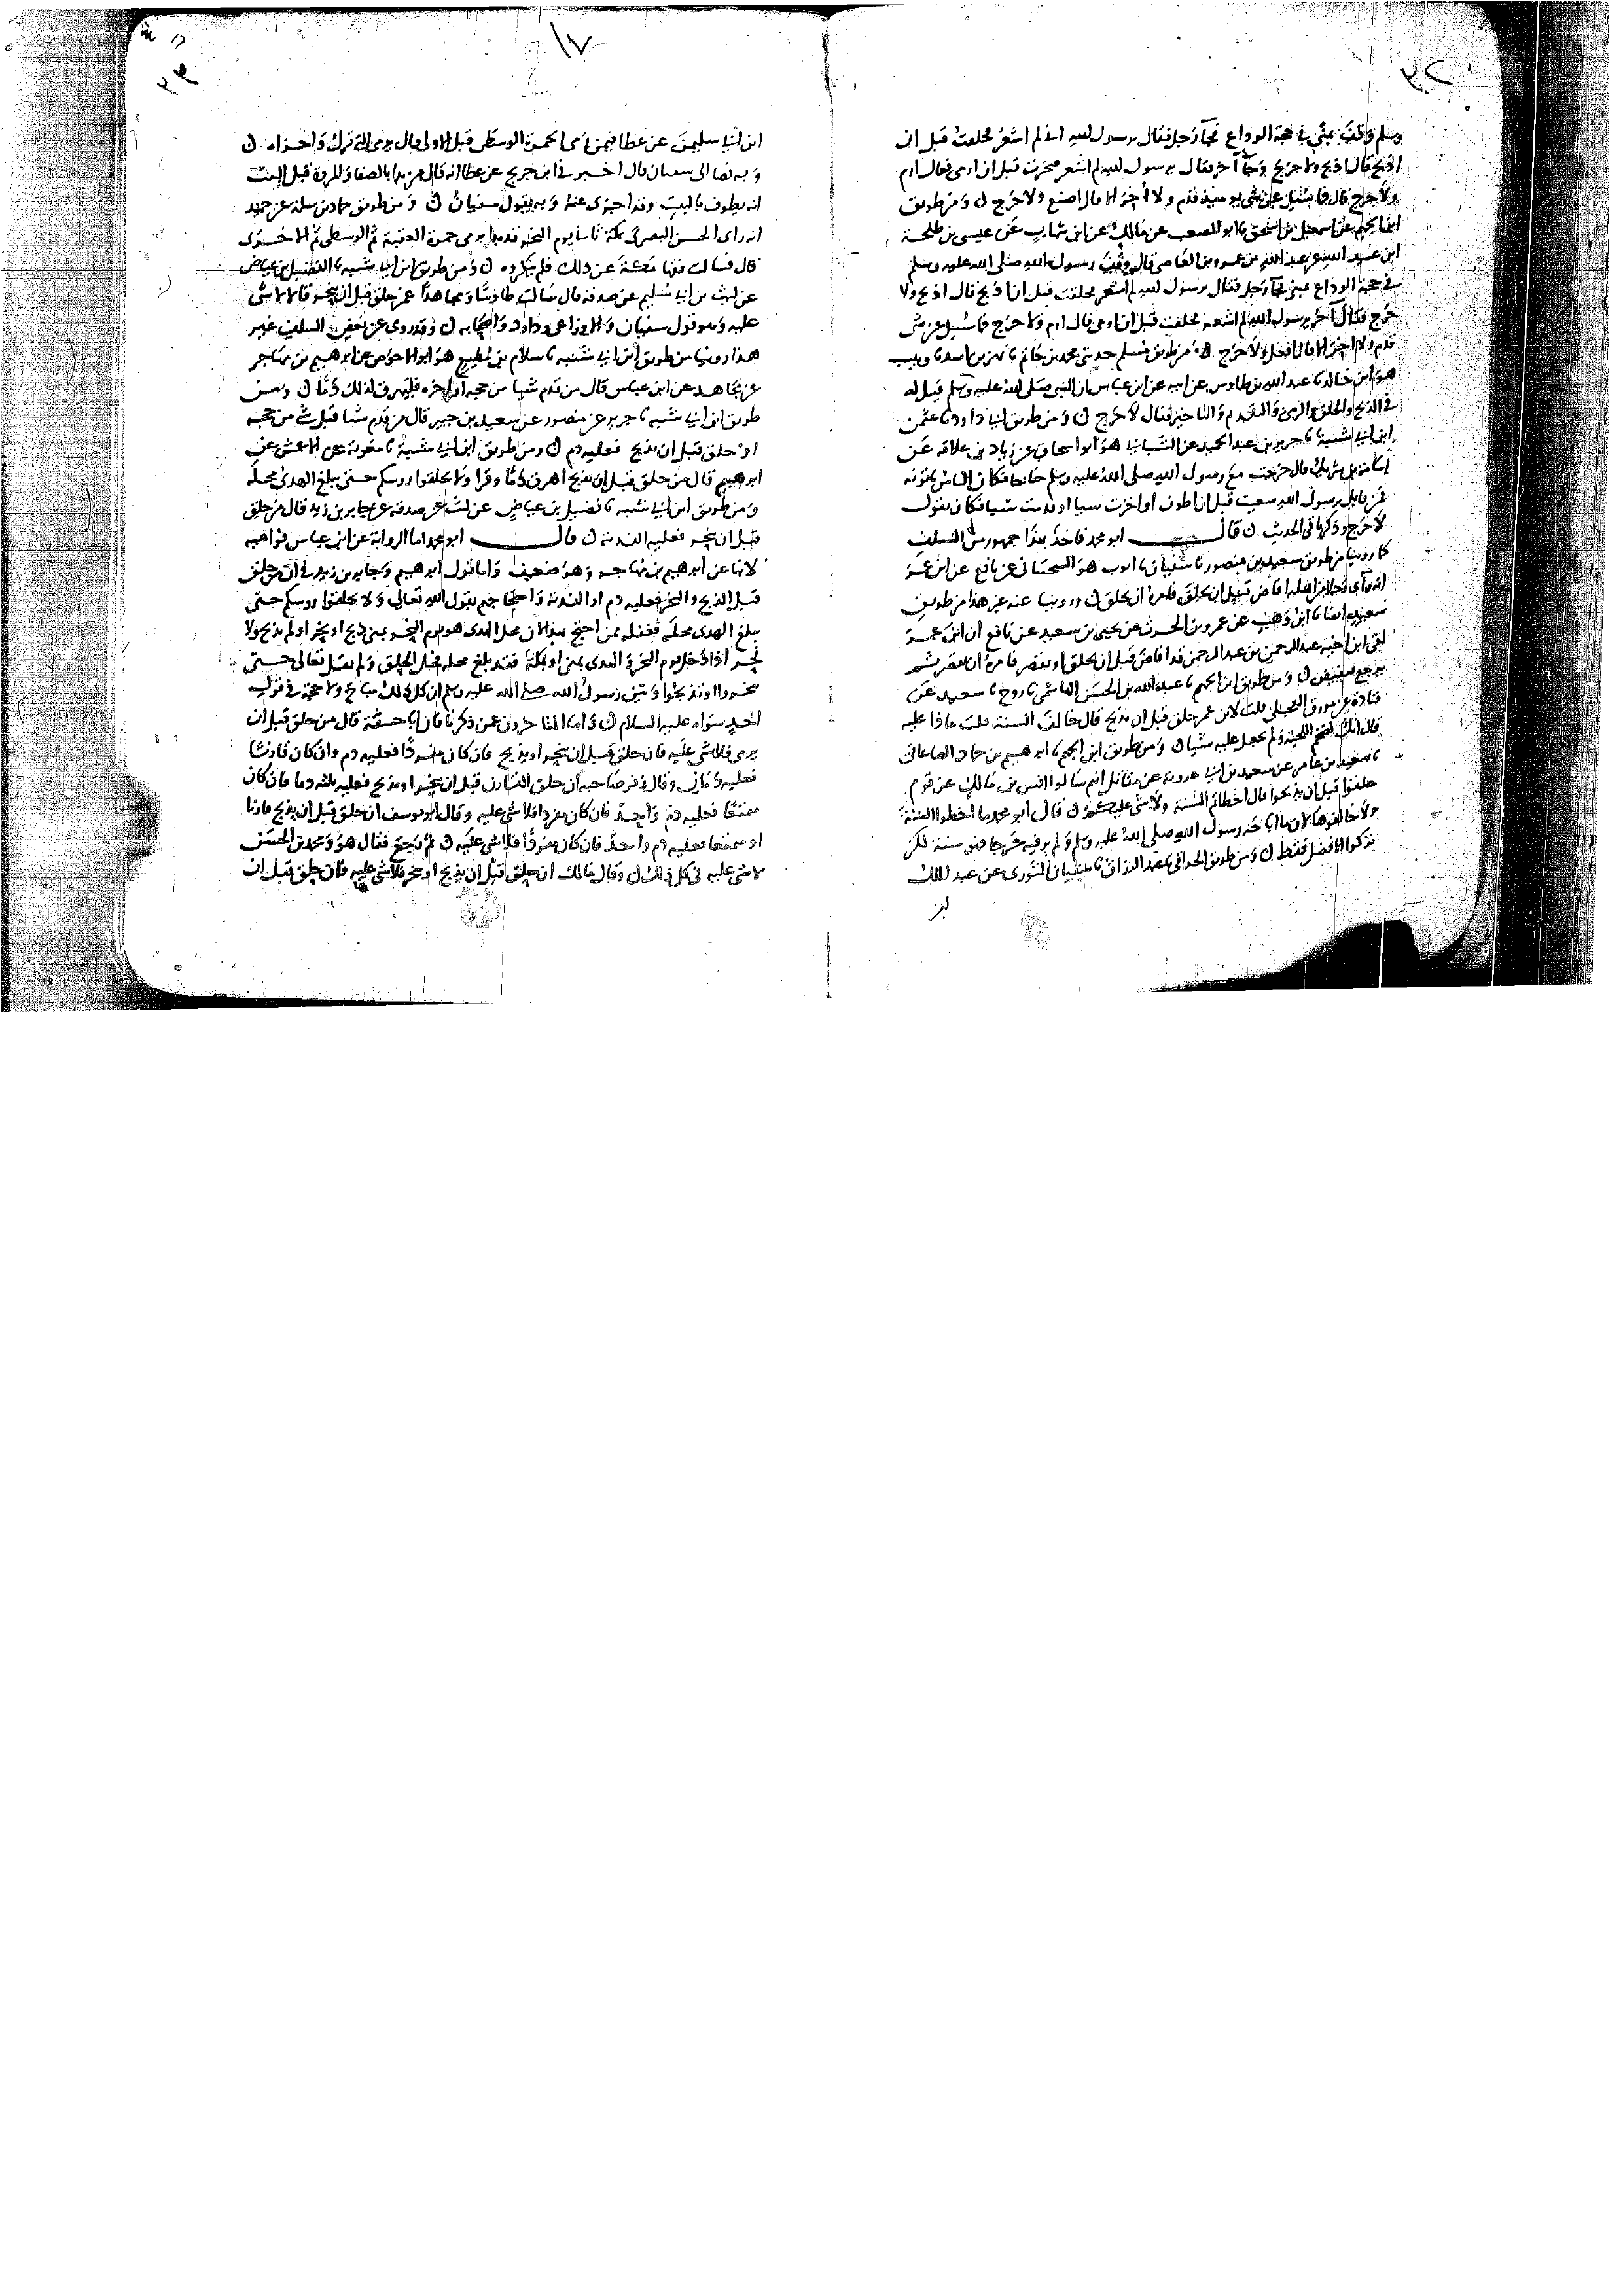 ٢٢
وسلم وقف بمنى في حجة الوداع فجآ رجل فقال يرسول الله اني لم اشعر فحلقت قبل ان
اذبح قال اذبح ولا حرج وجآ آخر فقال يرسول الله لم اشعر فنحرت قبل ان ارمي فقال ارم
ولا حرج قال فما سئل عن شي يوميذ قدم ولا أخر الا قال اصنع ولا حرج ومن طريق
ابن الجهم عن اسمعيل بن اسحق نا ابو المصعب عن مالك عن ابن شهاب عن عيسى بن طلحة
ابن عبيد الله عن عبد الله بن عمرو بن العاصي قال وقف رسول الله صلى الله عليه وسلم
في حجة الوداع بمنى فجآ رجل فقال يرسول الله لم اشعر فحلقت قبل ان اذبح قال اذبح ولا
حرج فقال آخر يرسول الله لم اشعر فحلقت قبل ان ارمي قال ارم ولا حرج فما سئل عن شي
قدم ولا اخر الا قال افعل ولا حرج ومن طريق مسلم حدثني محمد بن حاتم نا بهز بن اسد نا وهيب
هو ابن خالد نا عبد الله بن طاوس عن ابيه عن ابن عباس ان النبي صلى الله عليه وسلم قيل له
في الذبح والحلق والرمي والتقديم والتاخير فقال لا حرج ومن طريق ابي داود نا عثمن
ابن ابي شيبة نا جرير بن عبد الحميد عن الشيباني هو ابو اسحاق عن زياد بن علاقه عن
اسامة بن شريك قال خرجت مع رسول الله صلى الله عليه وسلم حاجا فكان الناس ياتونه
فمن قايل يرسول الله سعيت قبل ان اطوف او اخرت شيا او قدمت شيا فكان يقول
لا حرج وذكر باقي الحديث قال ابو محمد فاخذ بهذا جمهور من السلف
كما روينا من طريق سعيد بن منصور نا سفيان نا ايوب هو السختياني عن نافع عن ابن عمر
انه رآى رجلا من اهله افاض قبل ان يحلق فامره ان يحلق وروينا عنه غير هذا من طريق
سعيد ايضا نا ابن وهب عن عمرو بن الحرث عن يحيى بن سعيد عن نافع ان ابن عمر
لقي ابن اخيه عبد الرحمن بن عبد الرحمن قد افاض قبل ان يحلق او يقصر فامره ان يقصر ثم
يرجع فيفيض ومن طريق ابن الجهم نا عبد الله بن الحسن الهاشمي نا روح نا سعيد عن
قتادة عن مورق العجلي قلت لابن عمر حلق قبل ان يذبح قال خالف السنة قلت ماذا عليه
قال انك لضخم اللحية ولم يجعل عليه شيا ومن طريق ابن الجهم نا ابرهيم بن حماد
نا سعيد بن عامر عن سعيد بن ابي عروبة عن مقاتل انهم سالوا انس بن مالك عن قوم
حلقوا قبل ان يذبحوا قال اخطاتم السنة ولا شي عليكم قال ابو محمد ما اخطوا السنة
ولا خالفوها لان ما اباحه رسول الله صلى الله عليه وسلم ولم ير فيه حرجا فهو سنة لكن
تركوا الافضل فقط ومن طريق الحذافي نا عبد الرزاق نا سفيان الثوري عن عبد الملك
ابن
١٧
٢٣
ابن ابي سليمن عن عطا فيمن رمى الجمرة الوسطى قبل الاولى قال يرمي التي ترك واجزاه
وبه نصا الى سفيان قال اخبرني ابن جريج عن عطا انه قال من بدا بالصفا والمروة قبل البيت
انه يطوف بالبيت وقد اجزى عنه وبه يقول سفيان ومن طريق حماد بن سلمة عن حميد
انه راى الحسن البصري بمكة ناسيا يوم النحر فبدا برمي جمرة العقبة ثم الوسطى ثم الاخرى
قال فسالت فقها مكة عن ذلك فلم ينكروه ومن طريق ابن ابي شيبه نا الفضيل بن عياض
عن ليث بن ابي سليم عن صدقه قال سالت طاوسا ومجاهدا عمن حلق قبل ان ينحر قالا لا شي
عليه وهو قول سفيان والاوزاعي وداود واصحابه وقد روي عن بعض السلف غير
هذا روينا من طريق ابن ابي شيبه نا سلام بن مطيع هو ابو الاحوص عن ابرهيم بن مهاجر
عن مجاهد عن ابن عباس قال من قدم شيا من حجه او اخره فليهرق لذلك دما ومن
طريق ابن ابي شيبه نا جرير عن منصور عن سعيد بن جبير قال من قدم شيا قبل شي من حجه
او حلق قبل ان يذبح فعليه دم ومن طريق ابن ابي شيبة نا معوية عن الاعمش عن
ابرهيم قال من حلق قبل ان يذبح اهرق دما وقرا ولا تحلقوا روسكم حتى يبلغ الهدي محله
ومن طريق ابن ابي شيبه نا فضيل بن عياض عن ليث عن صدقه عن جابر بن زيد قال من حلق
قبل ان ينحر فعليه الفدية قال ابو محمد اما الرواية عن ابن عباس فواهيه
لانها عن ابرهيم بن مهاجر وهو ضعيف واما قول ابرهيم وجابر بن زيد في ان من حلق
قبل الذبح والنحر فعليه دم او الفدية واحتجاجهم بقول الله تعالى ولا تحلقوا روسكم حتى
يبلغ الهدي محله فغفله ممن احتج بهذا لان محل الهدي هو يوم النحر بمنى ذبح او نحر او لم يذبح ولا
نحر اذا دخل يوم النحر والهدي بمنى او بمكة فقد بلغ محله فحل الحلق ولم يقل تعالى حتى
تنحروا او تذبحوا وبين رسول الله صلى الله عليه وسلم ان كل ذلك مباح ولا حجة في قول
احد سواه عليه السلام واما المتاخرون عمن ذكرنا فان ابا حنيفة قال من حلق قبل ان
يرمي فلا شي عليه فان حلق قبل ان ينحر او يذبح فان كان مفردا فعليه دم وان كان قارنا
فعليه دمان وقال زفر صاحبه ان حلق القارن قبل ان ينحر او يذبح فعليه ثلثه دما فان كان
متمتعا فعليه دم واحد فان كان مفردا فلا شي عليه وقال ابو يوسف ان حلق قبل ان يذبح قارنا
او متمتعا فعليه دم واحد فان كان مفردا فلا شي عليه ثم رجع فقال هو ومحمد بن الحسن
لا شي عليه في كل ذلك وقال مالك ان حلق قبل ان يذبح او ينحر فلا شي عليه فان حلق قبل ان